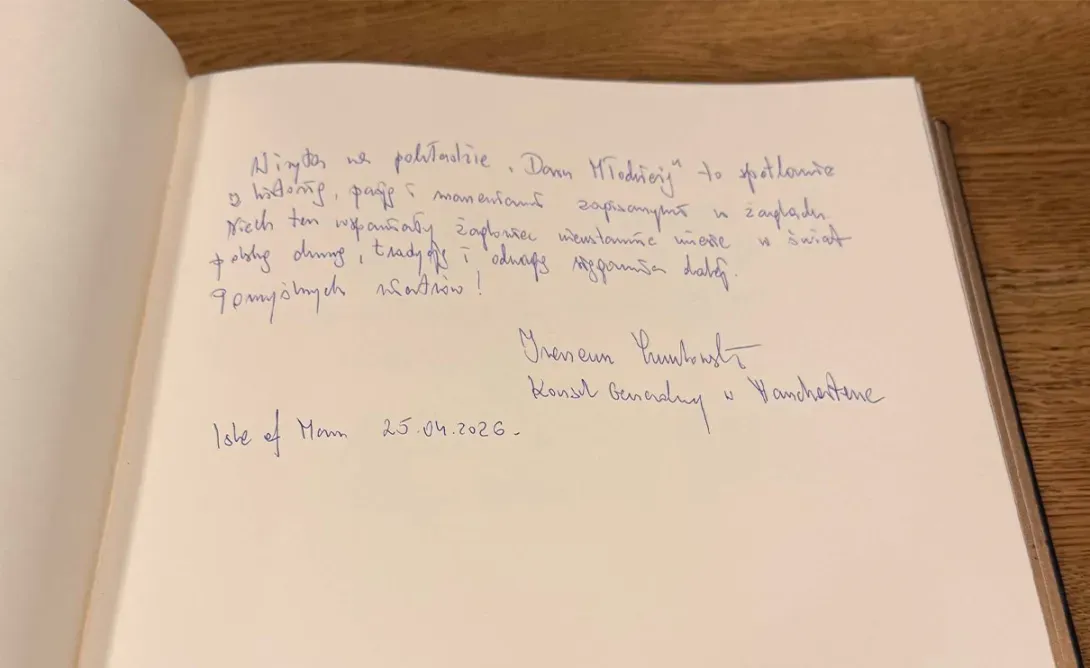 Wizyta na pokładzie „Daru Młodzieży" to spotkanie
z historią, pasją i marzeniami zapisanymi w żaglach.
Niech ten wspaniały żaglowiec nieustannie niesie w świat
polską dumę, tradycję i odwagę sięgania dalej.
Pomyślnych wiatrów!
Ireneusz
Konsul Generalny w Manchesterze
Isle of Mann 25.04.2026.